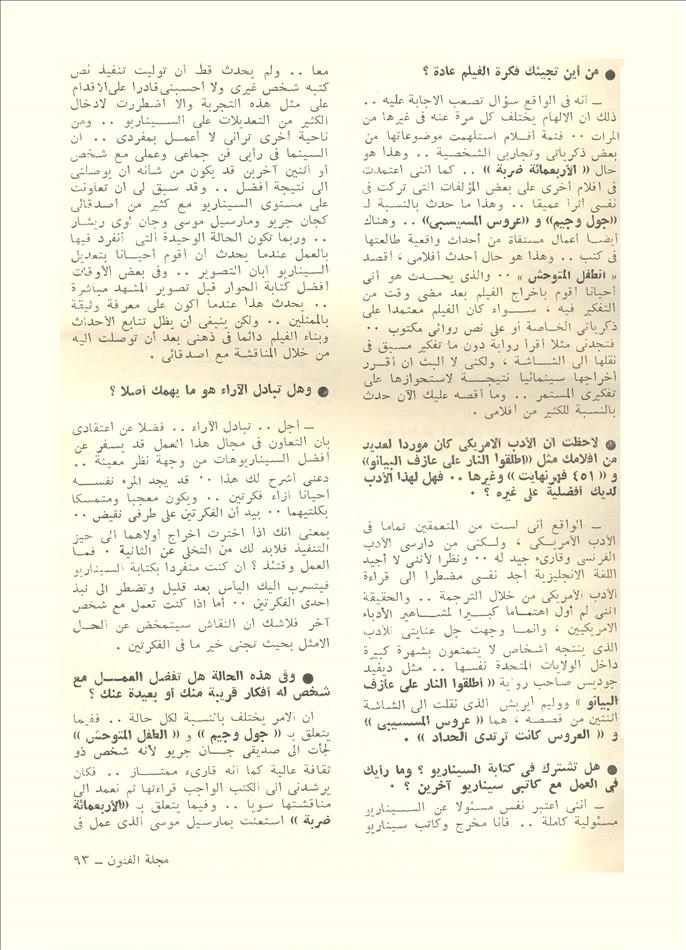 ● من أين تجيئك فكرة الفيلم عادة ؟
ــ انه فى الواقع سؤال تصعب الاجابة عليه ..
ذلك ان الالهام يختلف كل مرة عنه فى غيرها من
المرات ·· فثمة أفــلام استلهمت موضوعاتها من
بعض ذكرياتى وتجاربى الشخصية .. وهذا هو
حال (( الأربعمائة ضربة )) .. كما اننى اعتمدت
فى افلام أخرى على بعض المؤلفات التى تركت فى
نفسى أثرا عميقا .. وهذا ما حدث بالنسبة لـ
((جول وجيم)) و ((عروس المسيسبى)) .. وهناك
أيضـا أعمال مستقاة من أحداث واقعية طالعتها
فى كتب .. وهذا هو حال أحدث أفلامى ، اقصد
« الطفل المتوحش » ·· والذى يحــدث هو أنى
أحيانا أقوم باخراج الفيلم بعد مضى وقت من
التفكير فيه ، ســواء كان الفيلم معتمدا على
ذكرياتى الخاصة أو على نص روائى مكتوب ··
فتجدنى مثلا أقرأ رواية دون ما تفكير مسبق فى
نقلها الى الشــاشة ، ولكنى لا البث ان أقــرر
أخراجها سينمائيا نتيجــة لاستحوازها على
تفكيرى المستمر .. وما أقصه عليك الآن حدث
بالنسبة للكثير من أفلامى .
● لاحظت ان الأدب الامريكى كان موردا لعديد
من افلامك مثل ((اطلقوا النار على عازف البيانو))
و (( ٤٥١ فهرنهايت )) وغيرها .. فهل لهذا الأدب
لديك أفضلية على غيره ؟ .
ــ الواقع أنى لست من المتعمقين تماما فى
الأدب الأمريــكى ، ولــكنى من دارسى الأدب
الفرنسى وقارىء جيد له ·· ونظرا لأننى لا أجيد
اللغة الانجليزية أجد نفسى مضطرا الى قراءة
الأدب الأمريكى من خلال الترجمة .. والحقيقة
اننى لم أول اهتمــاما كبيــرا لمشــاهير الأدباء
الامريكيين ، وانمــا وجهت جل عنايتى الأدب
الذى ينتجه اشخاص لا يتمتعون بشهرة كبيرة
داخل الولايات المتحدة نفسهــا .. مثل ديفيد
جوديس صاحب رواية (( أطلقوا النار على عازف
البيانو )) ووليم ايريش الذى نقلت الى الشاشة
اثنتين من قصصه ، هما (( عروس المسسيبى ))
و (( العروس كانت ترتدى الحداد )) .
● هل تشترك فى كتابة السيناريو ؟ وما رأيك
فى العمل مع كاتبى سيناريو آخرين ؟ .
ــ اننى اعتبر نفس مسئولا عن الســيناريو
مسئولية كاملة .. فأنا مخرج وكاتب سيناريو
معا .. ولم يحدث قط أن توليت تنفيذ نص
كتبه شخص غيرى ولا احسبنى قادرا على الاقدام
على مثل هذه التجربة والا اضطررت لادخال
الكثير من التعديلات على السـيناريو .. ومن
ناحية أخرى ترانى لا أعمــل بمفردى .. ان
السينما فى رأيى فن جماعى وعملى مع شخص
أو اثنين آخرين قد يكون من شأنه أن يوصلنى
الى نتيجة افضل .. وقد سبق لى ان تعاونت
على مستوى السيناريو مع كثير من اصدقائى
كجان جريو ومارسيل موسى وجان لوى ريشار
.. وربما تكون الحالة الوحيدة التى أنفرد فيها
بالعمل عندما يحدث أن أقوم أحيــانا بتعديل
السيناريو ابان التصوير .. وفى بعض الأوقات
افضل كتابة الحوار قبل تصوير المشهد مباشرة
.. يحدث هذا عندما أكون على معرفة وثيقة
بالممثلين .. ولكن ينبغى ان يظل تتابع الأحداث
وبناء الفيلم دائما فى ذهنى بعد أن توصلت اليه
من خلال المناقشة مع اصدقائى .
● وهل تبادل الآراء هو ما يهمك أصلا ؟
ــ أجل .. تبادل الآراء .. فضلا عن اعتقادى
بان التعاون فى مجال هذا العمل قد يسفر عن
أفضل السيناريوهات من وجهة نظر معينة ..
دعنى أشرح لك هذا ·· قد يجد المرء نفســه
أحيانا ازاء فكرتين .. ويكون معجبا ومتمسكا
بكلتيهما ·· بيد أن الفكرتين على طرفى نقيض ··
بمعنى انك اذا اخترت اخراج أولاهما الى حيز
التنفيذ فلابد لك من التخلى عن الثانية . فمــا
العمل وقتئذ ؟ ان كنت منفردا بكتابة السيناريو
فيتسرب اليك اليأس بعد قليل وتضطر الى نبذ
احدى الفكرتين ·· أما اذا كنت تعمل مع شخص
آخر فلاشك ان النقاش سيتمخض عن الحــل
الامثل بحيث تجنى خير ما فى الفكرتين .
● وفى هذه الحالة هل تفضل العمــل مع
شخص له أفكار قريبة منك أو بعيدة عنك ؟
ان الامر يختلف بالنسبة لكل حالة .. ففيما
يتعلق بـ (( جول وجيم )) و (( الطفل المتوحش ))
لجأت الى صديقى جــان جريو لأنه شخص ذو
ثقافة عالية كما انه قارىء ممتــاز .. فكان
يرشدنى الى الكتب الواجب قراءتها ثم نعمد الى
مناقشتها سويا .. وفيما يتعلق بـ ((الأربعمائة
ضربة )) استعنت بمارسيل موسى الذى عمل فى
مجلة الفنون ــ ٩٣